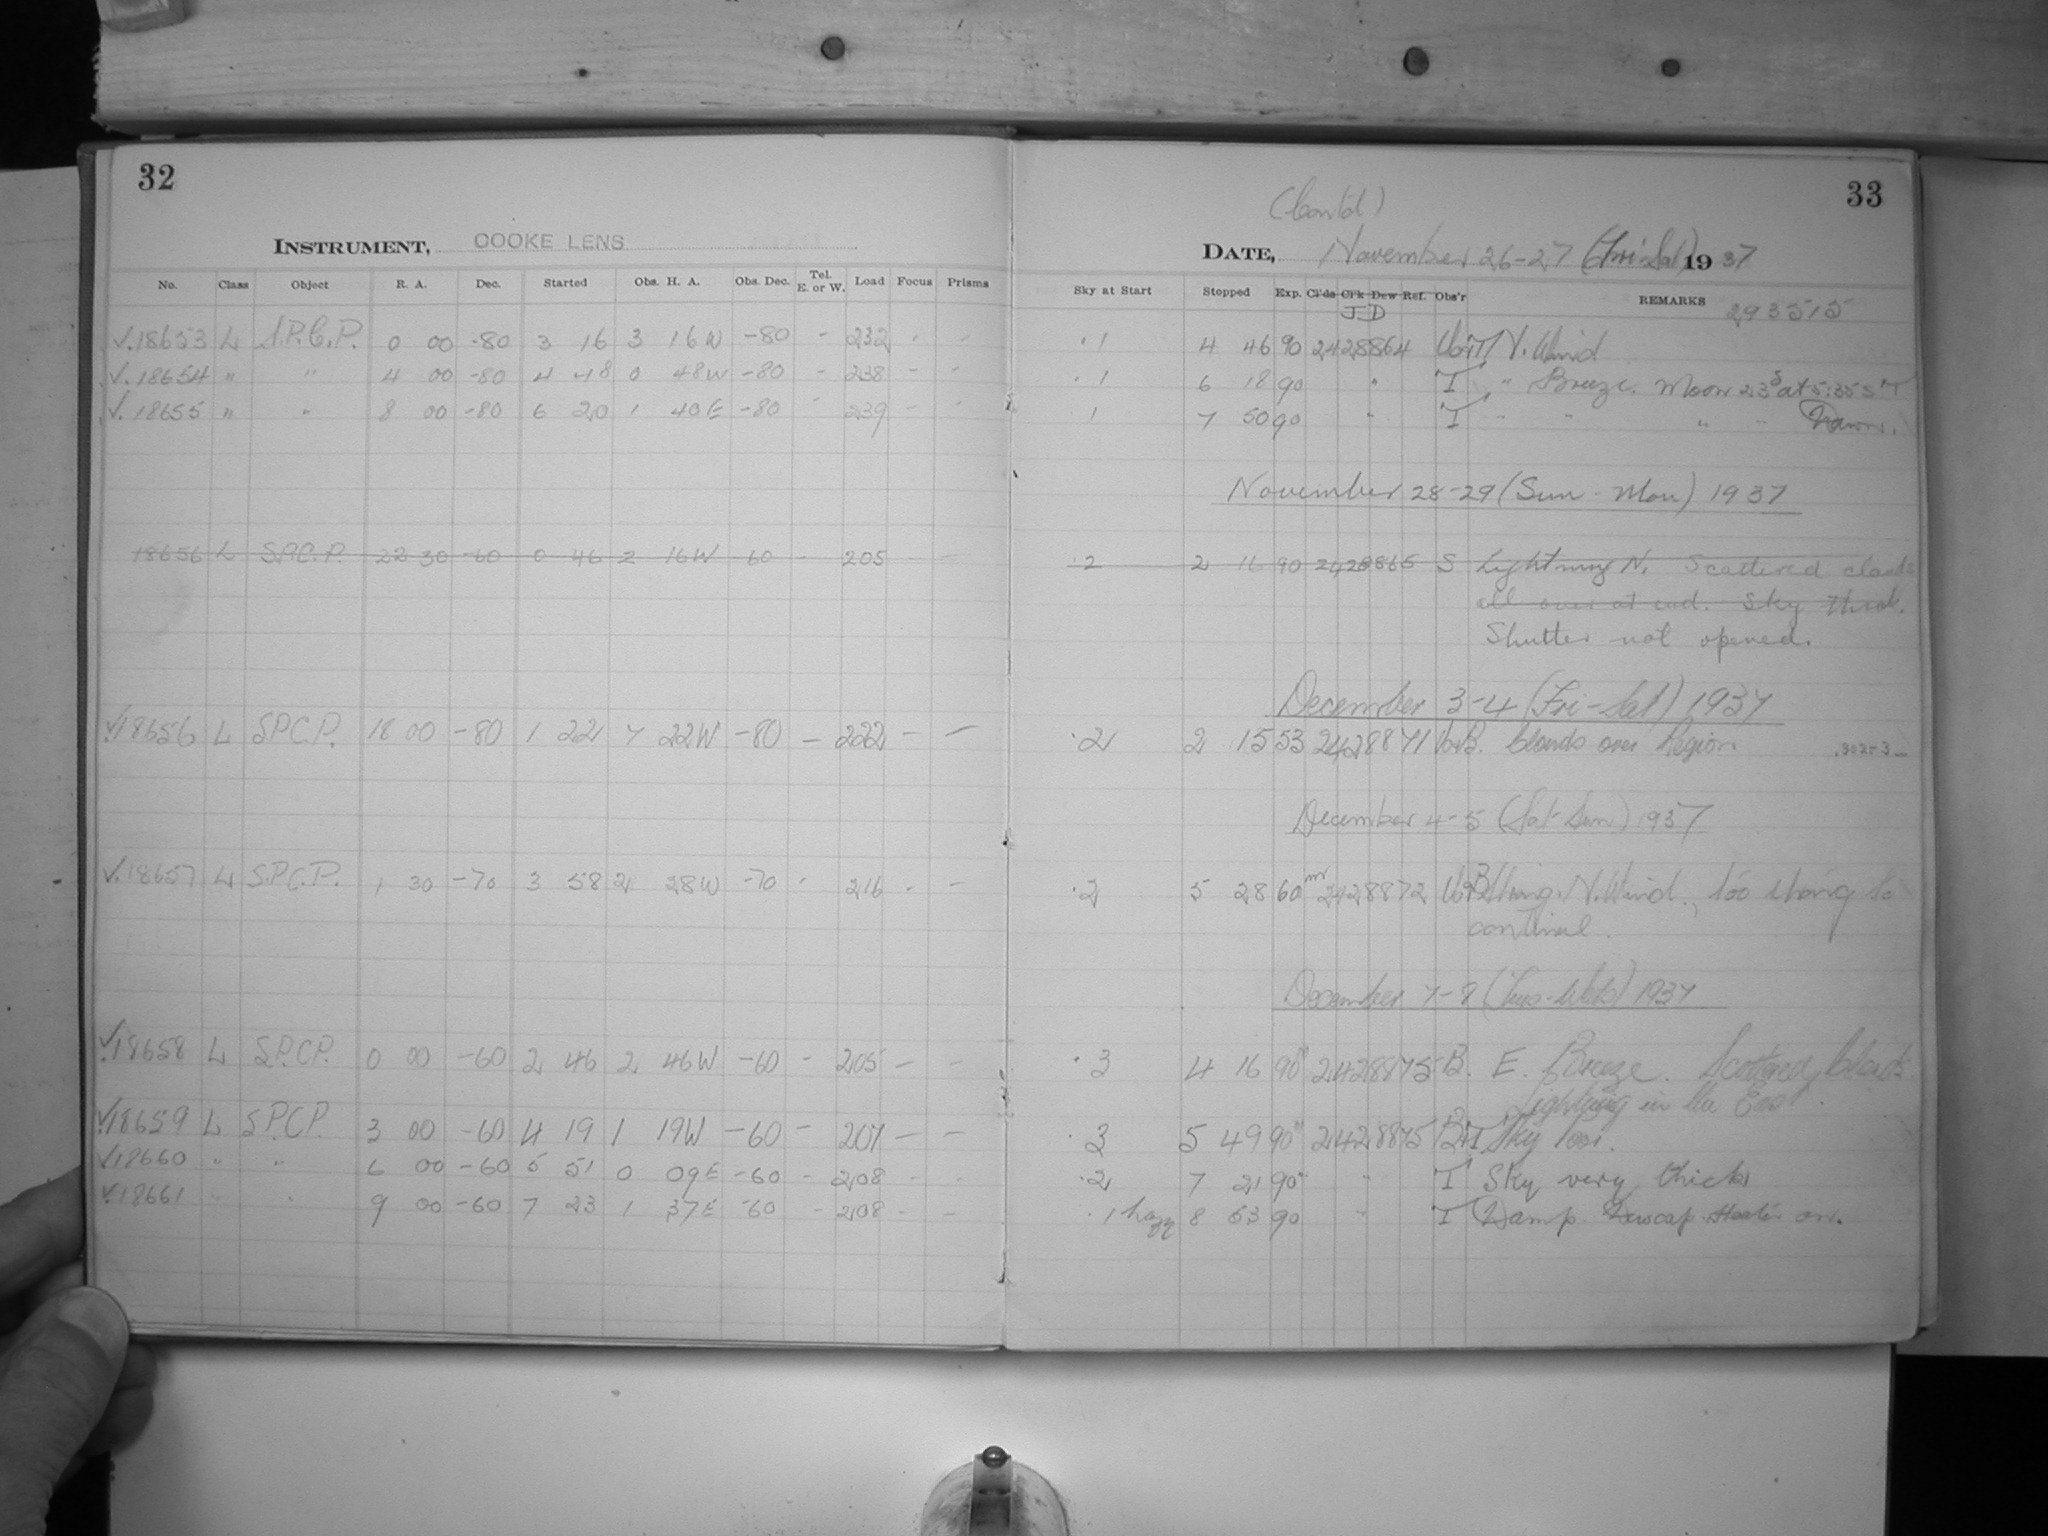 32
INSTRUMENT, COOKE LENS
No. Class Object R. A. Dec. Started Obs. H. A. Obs. Dec. Tel. E. or W. Load Focus Prisms
√.18653 L S.P.C.P. 0 00 -80 3 16 3 16W -80 - 232 - -
√.18654 " " 4 00 -80 4 48 0 48W -80 - 238 - -
√.18655 " " 8 00 -80 6 20 1 40E -80 - 239 - -
18656 L S.P.C.P. 22 30 -60 0 46 2 16W -60 - 205 -
√18656 L S.P.C.P. 18 00 -80 1 22 7 22W -80 - 222 - -
√.18657 L S.P.C.P. 1 30 -70 3 58 2 28W -70 - 216 - -
√18658 L S.P.C.P. 0 00 -60 2 46 2 46W -60 - 205 - -
√18659 L S.P.C.P. 3 00 -60 4 19 1 19W -60 - 207 - -
√18660 " " 6 00 -60 5 51 0 09E -60 - 208 - -
√18661 " " 9 00 -60 7 23 1 37E -60 - 208 - -
33
(Cont'd)
DATE, November 26-27 (Fri-Sat) 1937
Sky at Start Stopped Exp. Cl'ds Cl'k Dew Ref. Obs'r REMARKS 293515
J.D
.1 4 46 90 2428864 N. Wind
.1 6 18 90 " T " Breeze. Moon 23 at 5:35 S T
1 7 50 90 " T " " " " Dawn.
November 28-29 (Sun-Mon) 1937
.2 2 16 90 2428865 S Lightning N. Scattered clouds
all over at end. Sky thick.
Shutter not opened.
December 3-4 (Fri-Sat) 1937
.2 2 15 53 2428871 Clouds over Region
December 4-5 (Sat-Sun) 1937
.2 5 28 60 2428872 Strong N. Wind., too strong to
continue.
December 7-8 (Tues-Wed) 1937
.3 4 16 90 2428875 B. E. Breeze. Scattered Clouds.
Lightning in the East.
.3 5 49 90 2428875 B+T Sky Poor.
.2 7 21 90 " T Sky very thick
.1 hazy 8 53 90 " T Damp. Dewcap Heater on.